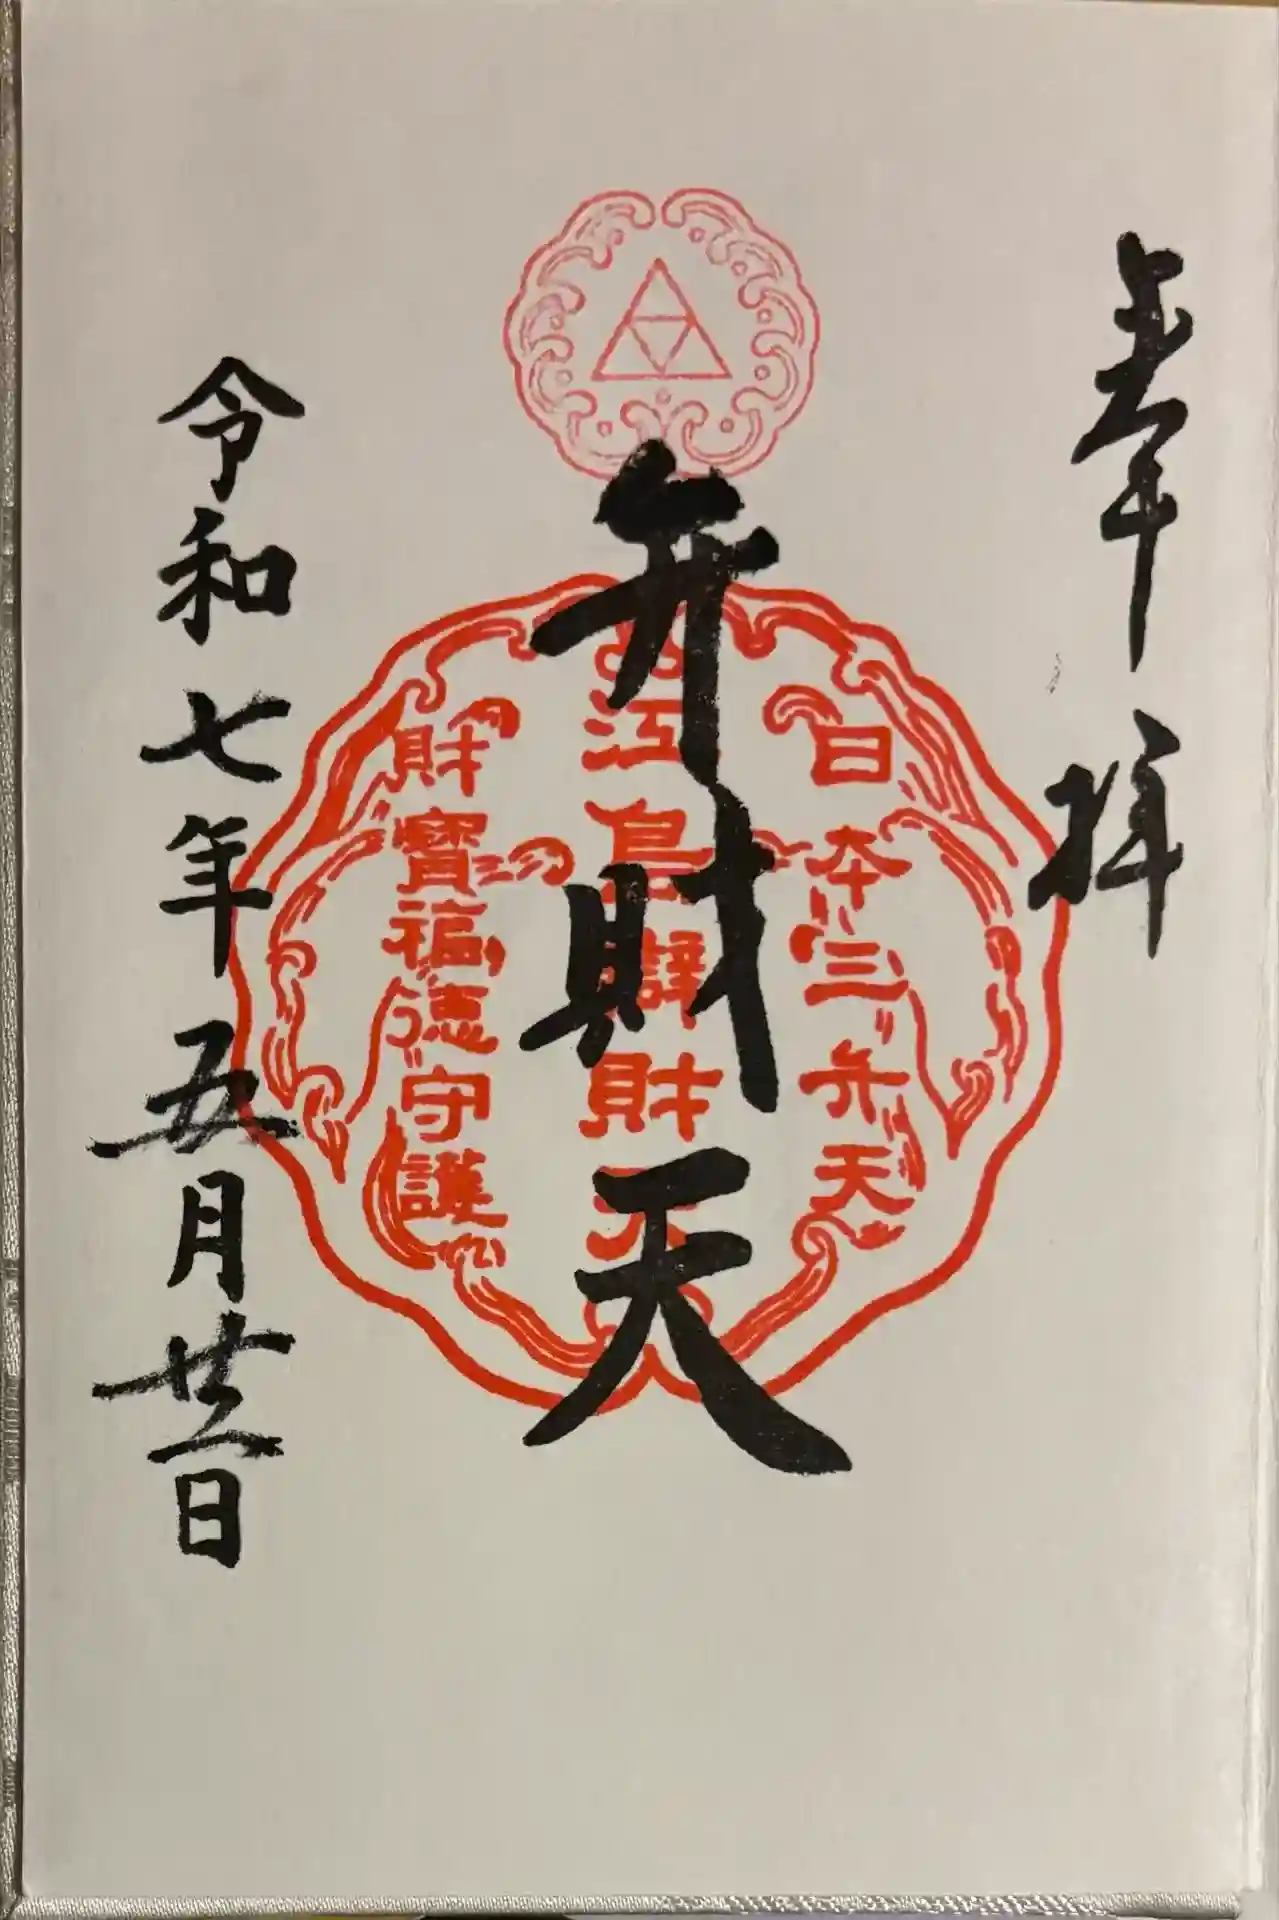 奉拝
日本三弁天
弁財天
江島辨財天
財寶福徳守護
令和七年五月廿一日